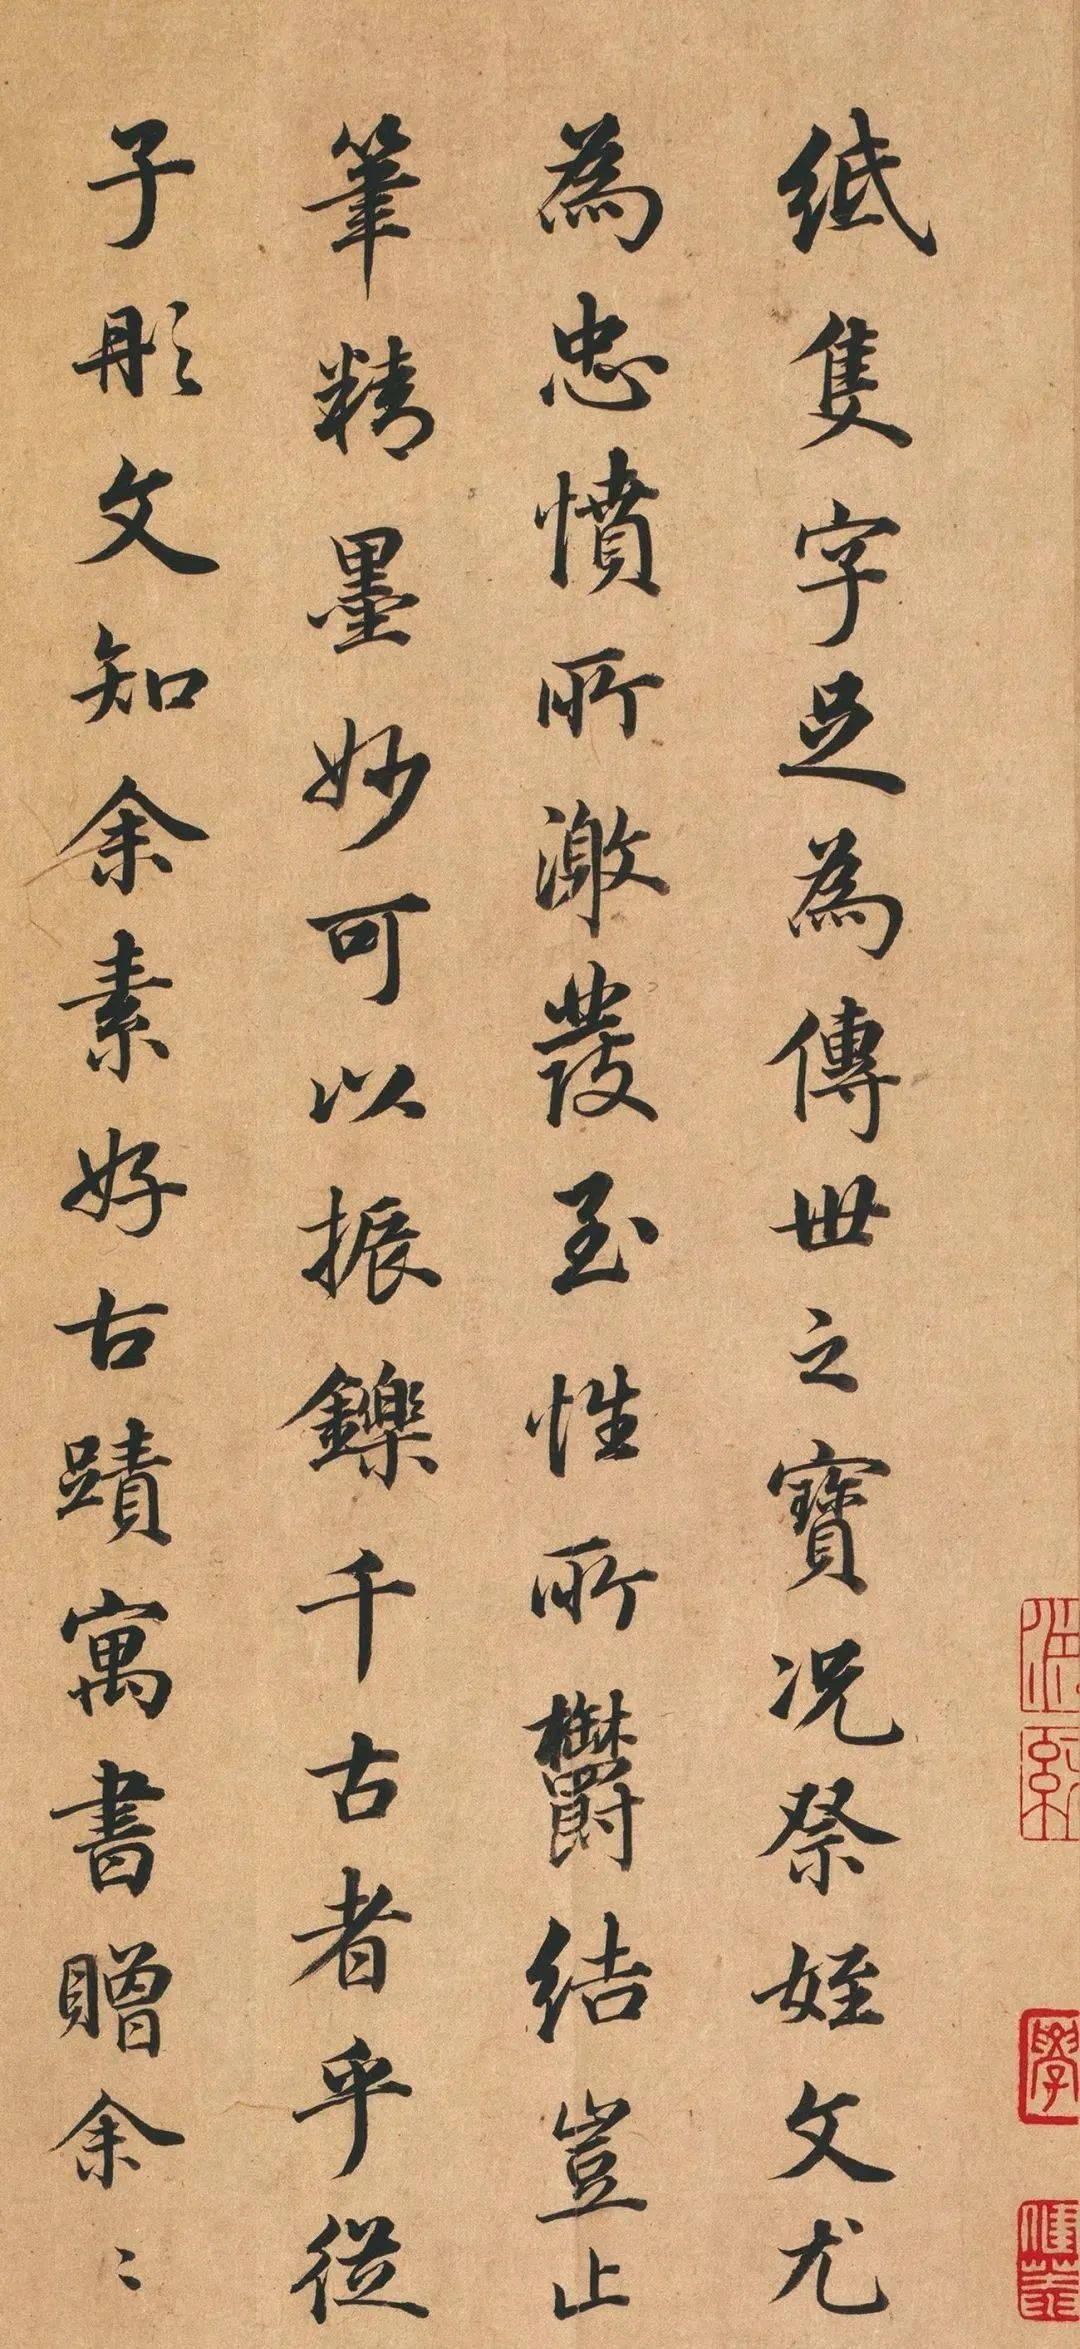 紙隻字足為傳世之寶況祭姪文尤
為忠憤所激發至性所鬱結豈止
筆精墨妙可以振鑠千古者乎從
子彤文知余素好古蹟寓書贈余〻